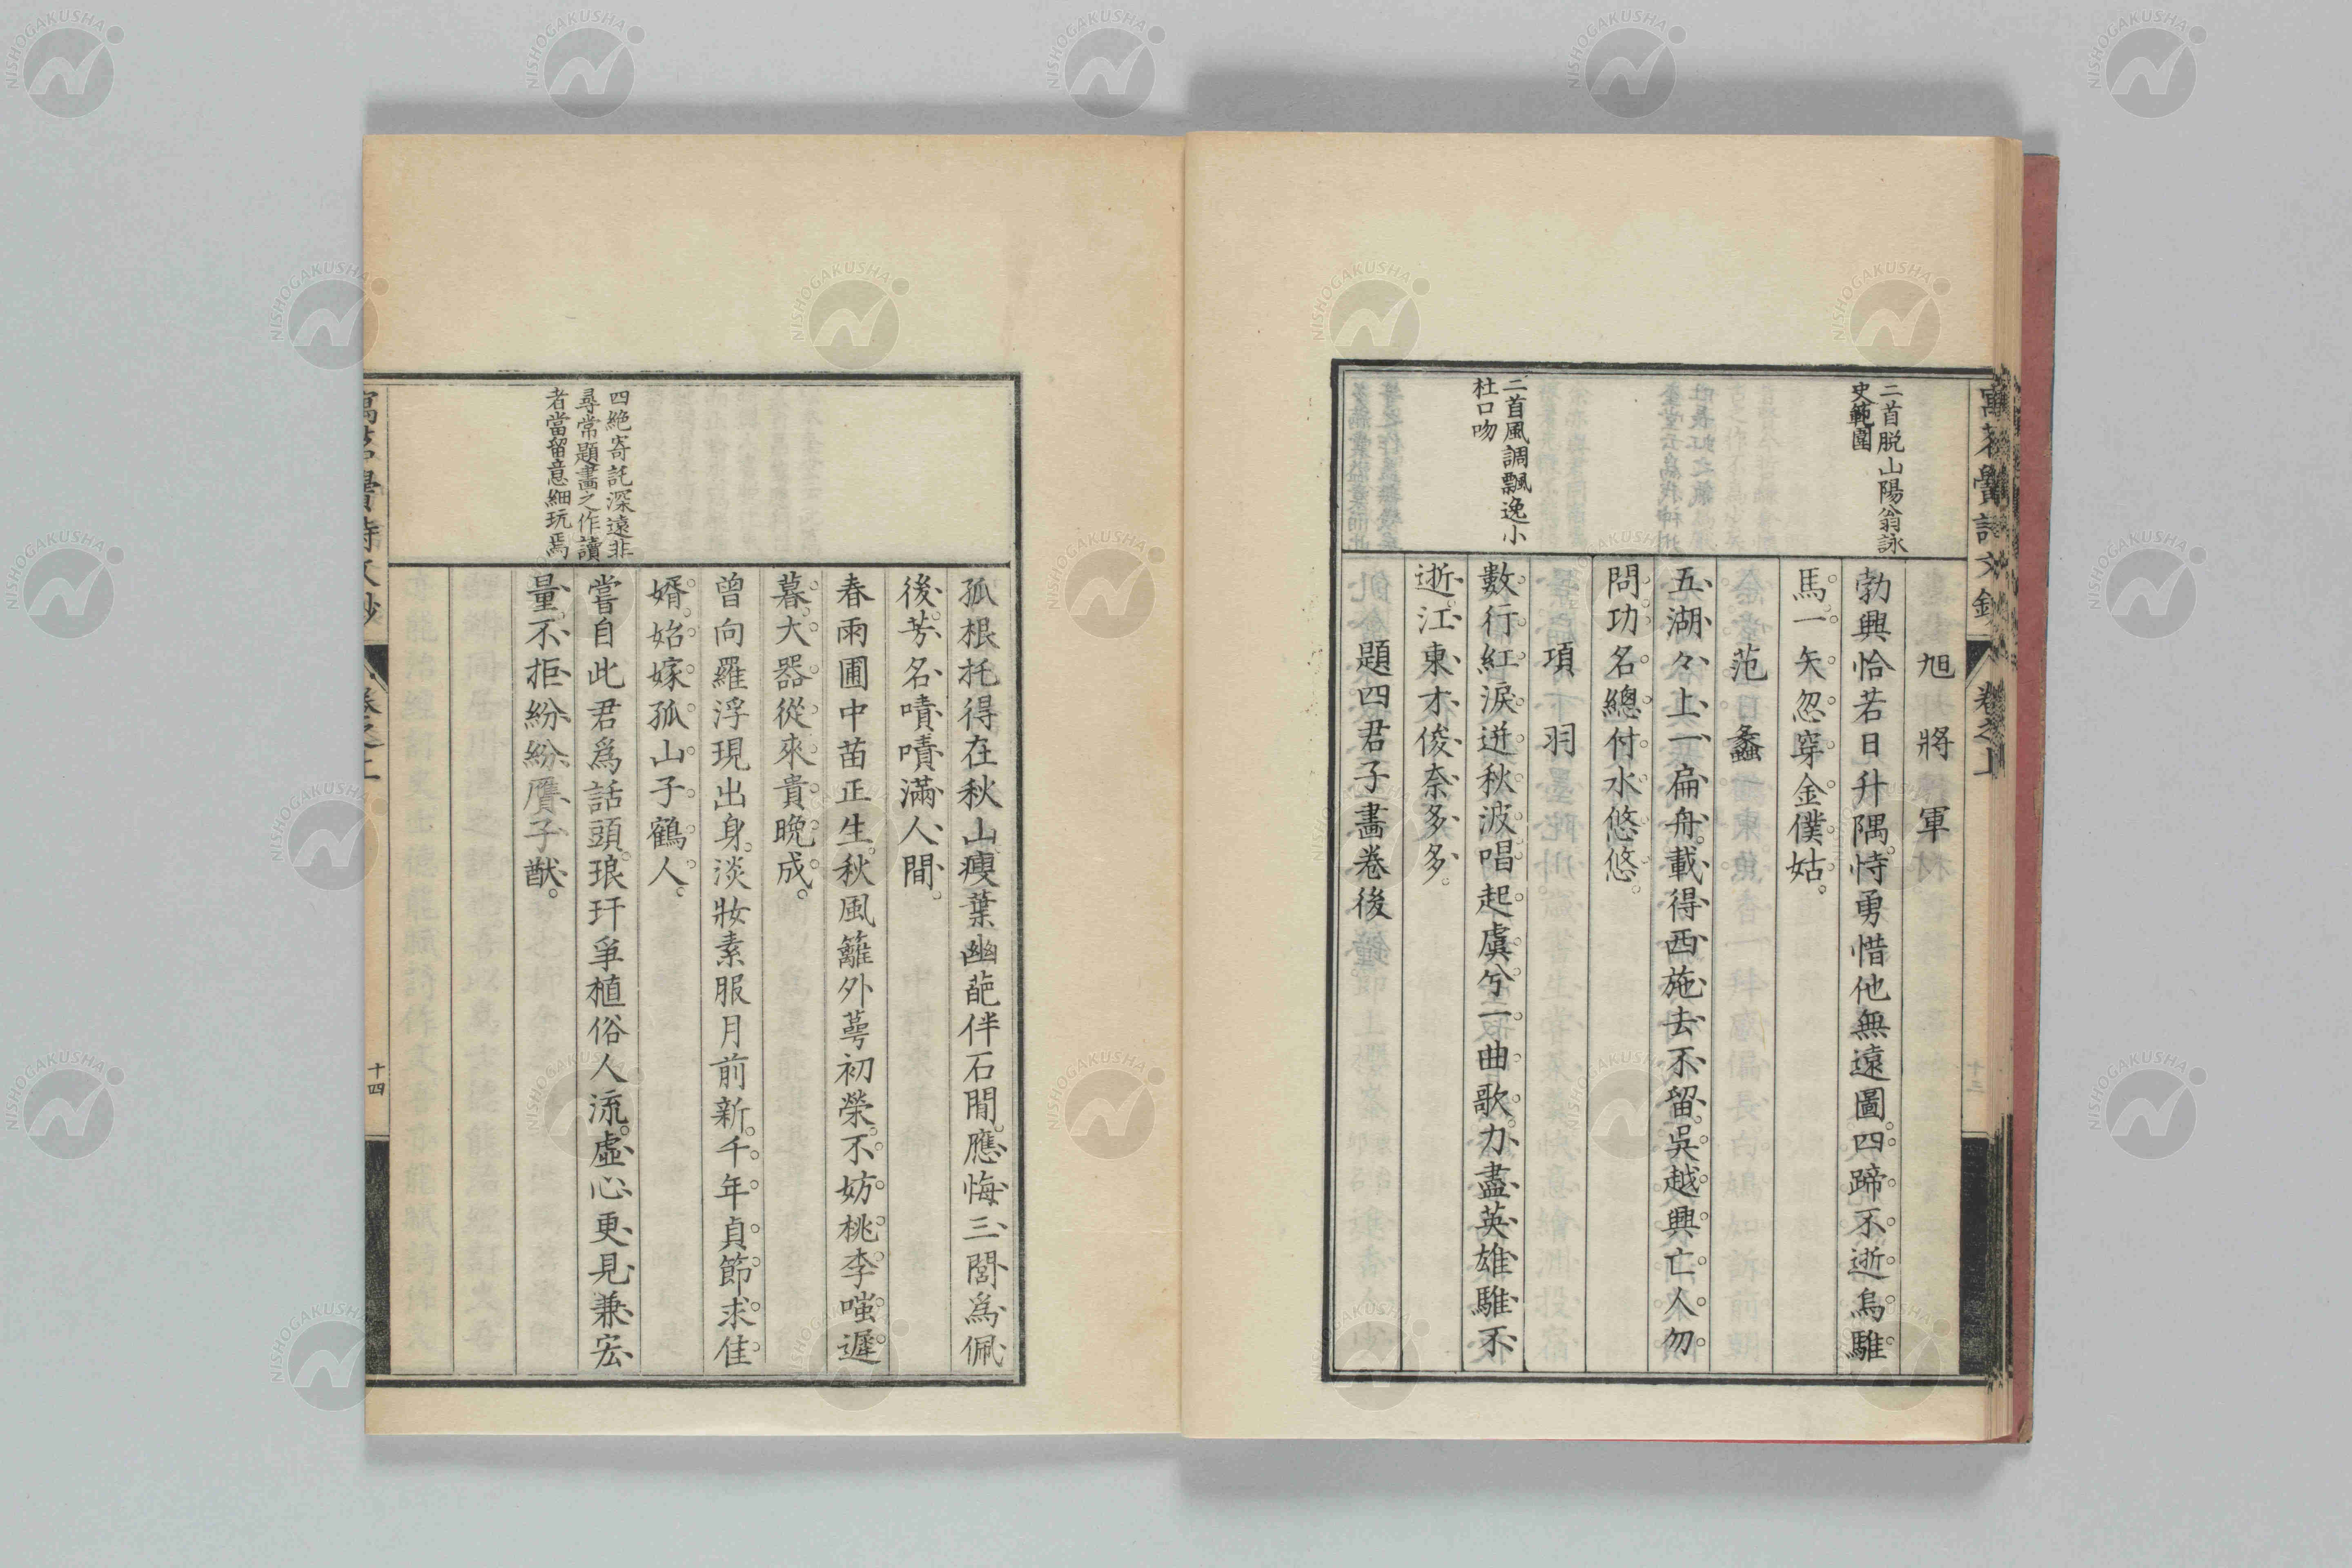 旭將軍
勃興恰若日升隅。恃勇惜他無遠圖。四蹄不逝烏騅
馬。一矢忽穿金僕姑。
范蠡
五湖々上一扁舟。載得西施去不留。吳越興亡人勿
問。功名總付水悠悠。
項羽
數行紅淚迸秋波。唱起虞兮一曲歌。力盡英雄騅不
逝。江東才俊奈多多。
題四君子畵卷後
二首脱山陽翁詠
史範圍
二首風調飄逸小
杜口吻
卷之上
孤根托得在秋山。瘦葉幽葩伴石閒。應悔三閭爲佩
後。芳名嘖嘖滿人間。
春雨圃中苗正生。秋風籬外蕚初榮。不妨桃李嗤遲
暮。大器從來貴晩成。
曾向羅浮現出身。淡妝素服月前新。千年貞節求佳
婿。始嫁孤山子鶴人。
嘗自此君爲話頭。琅玕爭植俗人流。虛心更見兼宏
量。不拒紛紛贋子猷。
四絶寄託深遠非
尋常題畵之作讀
者當留意細玩焉
十四
NISHOGAKUSHA